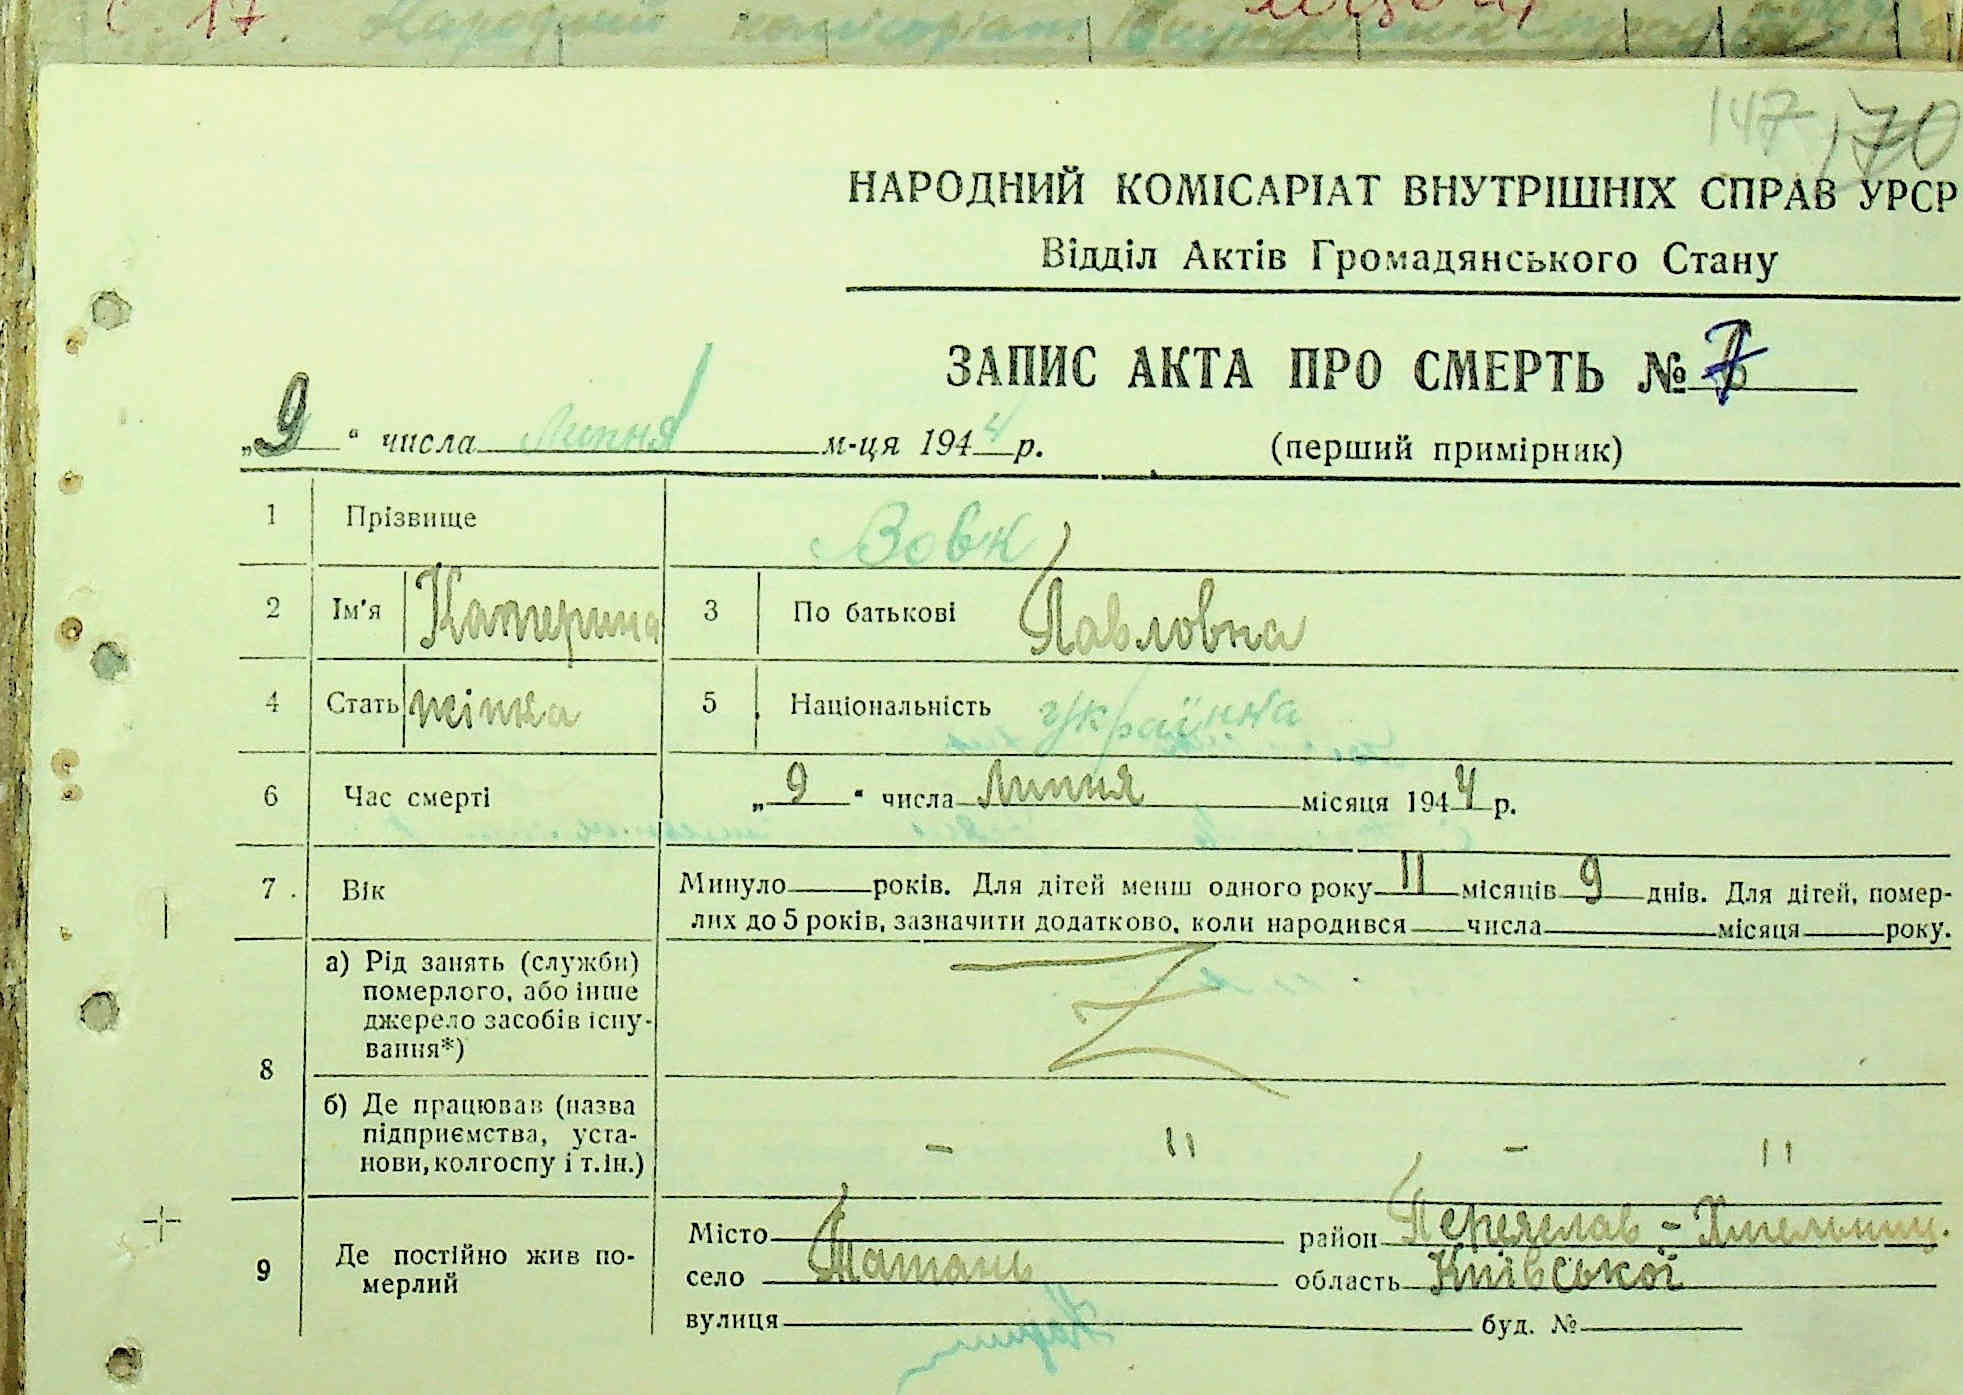 с. 17.
Народний комісаріат Внутрішніх справ
147 170
НАРОДНИЙ КОМІСАРІАТ ВНУТРІШНІХ СПРАВ УРСР
Відділ Актів Громадянського Стану
ЗАПИС АКТА ПРО СМЕРТЬ № 7
„9“ числа липня м-ця 1944 р. (перший примірник)
1 Прізвище Вовк
2 Ім'я Катерина 3 По батькові Павловна
4 Стать жінка 5 Національність українка
6 Час смерті „9“ числа липня місяця 1944 р.
7. Вік Минуло років. Для дітей менш одного року 11 місяців 9 днів. Для дітей, помер-
лих до 5 років, зазначити додатково, коли народився числа місяця року.
8 а) Рід занять (служби)
померлого, або інше
джерело засобів існу-
вання*)
б) Де працював (назва
підприємства, уста-
нови, колгоспу і т.ін.) – " – "
9 Де постійно жив по-
мерлий
Місто район Переяслав-Хмельниц.
село Ташань область Київської
вулиця буд. №